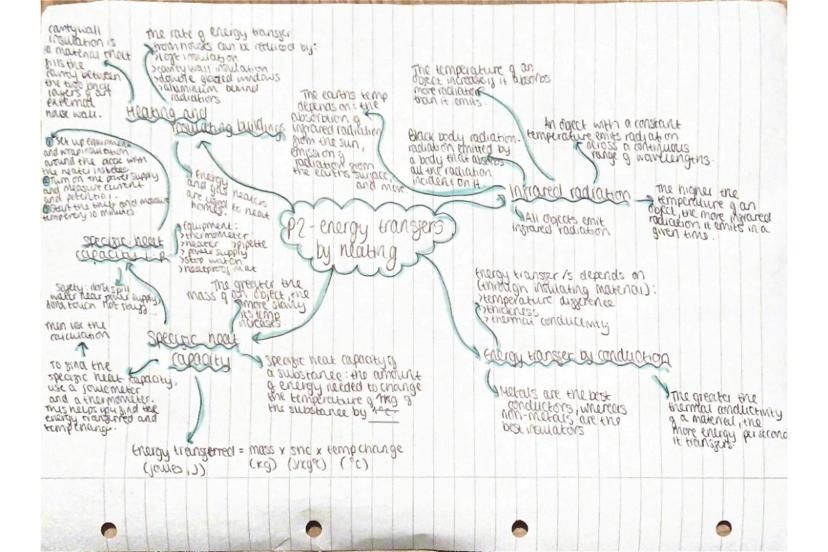 cavity wall
insulation is
a material that
fills the
cavity between
the two brick
layers of an
external
house wall.
The rate of energy transfer
from houses can be reduced by:
>loft insulation
>cavity wall insulation
>double glazed windows
>aluminium behind
radiators
Heating and
insulating buildings
> Energy
and gas heaters
are used to heat
homes.
The earths temp
depends on: the
absorption of
infrared radiation
from the sun,
emission of
radiation from
the earths surface,
and more
The temperature of an
object increases if it absorbs
more radiation
than it emits.
Black body radiation-
radiation emitted by
a body that absorbs
all the radiation
incident on it.
An object with a constant
temperature emits radiation
across a continuous
range of wavelengths.
Infrared radiation
The higher the
temperature of an
object, the more infrared
radiation it emits in a
given time.
All objects emit
infrared radiation
P2-energy transfers
by heating
① Set up equipment
and wrap insulation
around the
the heater
② Turn on the power supply
and measure current
and potential
③ Start the timer and measure
temp every 10 minutes
specific heat
capacity
Equipment:
>thermometer
>heater >pipette
>power supply
>stop watch
>heatproof mat
Safety: dont spill
water near power supply,
dont touch hot
then use the
calculation
To find the
specific heat capacity,
use a joulemeter
and a thermometer.
This helps you find the
energy transferred and
temp change.
The greater the
mass of an object, the
more slowly
its temp
increases
Specific heat
capacity
Specific heat capacity of
a substance: the amount
of energy needed to change
the temperature of 1kg of
the substance by 1°C
Energy transferred = mass x shc x temp change
(joules, J) (kg) (J/kg°C) (°C)
Energy transfer/s depends on
(through insulating material):
>temperature difference
>thickness
>thermal conductivity
Energy transfer by conduction
Metals are the best
conductors, whereas
non-metals are the
best insulators
The greater the
thermal conductivity
of a material, the
more energy per second
it transfers.